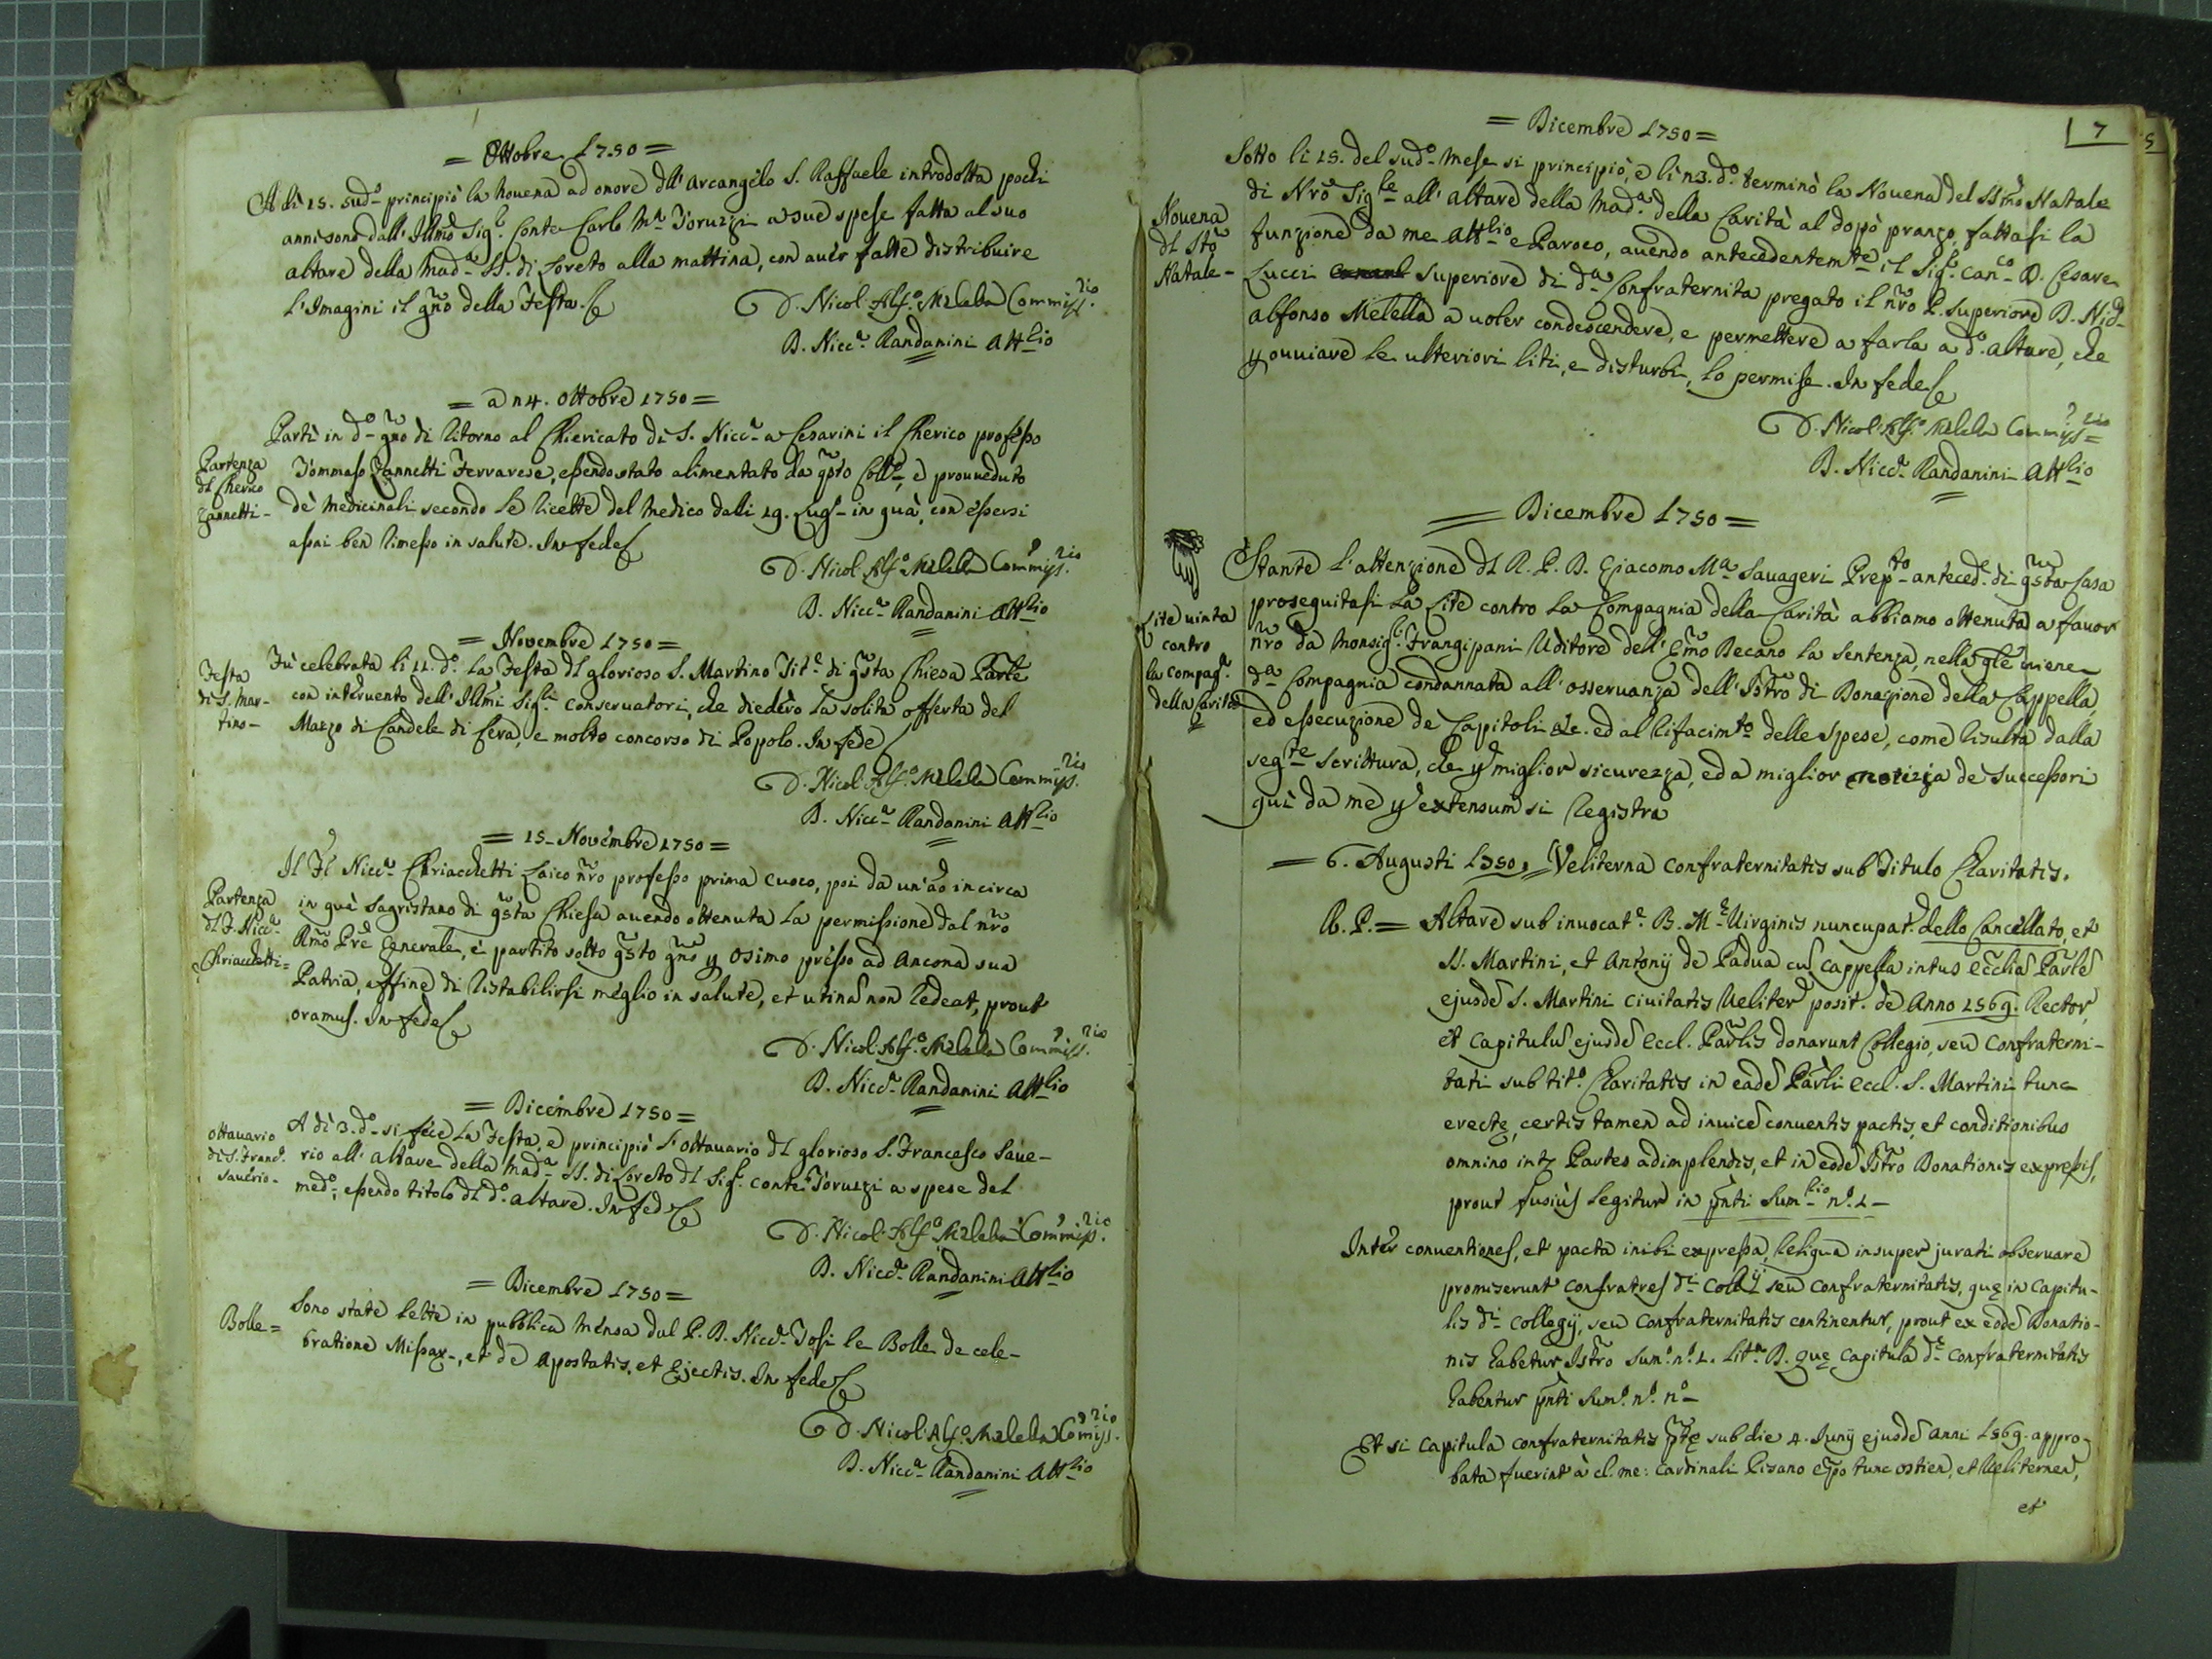 = Ottobre 1750 =
A dì 15. sud.o principiò la Novena ad onore dll' Arcangelo S. Raffaele introdotta pochi
anni sono dall' Illmo Sig.r Conte Carlo M.a Toruzzi a sue spese fatta al suo
altare della Mad.a SS. di Loreto alla mattina, con aver fatte distribuire
l'Imagini il gno della Festa.
D. Nicol. Alf.o Melella Commiss.rio
D. Nicc.a Randanini Att.lio
= a 24. Ottobre 1750 =
Partenza
dl Cherico
Zannetti -
Partì in d.o gno di ritorno al Chiericato di S. Nicc.a a Cesarini il Cherico professo
Tommaso Zannetti Ferrarese, essendo stato alimentato da qsto Coll.o, e provveduto
de medicinali secondo le ricette del Medico dalli 19. Lug.o in quà, con essersi
assai ben rimesso in salute. In fede
D. Nicol. Alf.o Melella Commiss.rio
D. Nicc.a Randanini Att.lio
= Novembre 1750 =
Festa
di S. Mar-
tino -
Fù celebrata li 11. d.o la Festa dl glorioso S. Martino Tit.e di qsta Chiesa Parle
con intervento dell' Illmi Sig.ri Conservatori, che diedero la solita offerta del
Mazzo di Candele di Cera, e molto concorso di Popolo. In fede
D. Nicol. Alf.o Melella Commiss.rio
D. Nicc.a Randanini Att.lio
= 15. Novembre 1750 =
Partenza
dl F. Nicc.a
Chriacchetti =
Il Fl Nicc.a Chriacchetti Laico nro professo prima cuoco, poi da un'ao in circa
in quà sagristano di qsta Chiesa avendo ottenuta la permissione dal nro
Rmo Pre Generale, è partito sotto qsto gno p Osimo presso ad Ancona sua
Patria, affine di ristabilirsi meglio in salute, et utina non redeat, prout
oramus. In fede
D. Nicol. Alf.o Melella Commiss.rio
D. Nicc.a Randanini Att.lio
= Dicembre 1750 =
Ottavario
di S. Franc.o
Saverio -
A dì 3. d.o si fece la Festa, e principiò l'ottavario dl glorioso S. Francesco Save-
rio all' altare della Mad.a SS. di Loreto dl Sig.r Conte Toruzzi a spese del
med.o, essendo titolo dl d.o altare. In fede
D. Nicol. Alf.o Melella Commiss.rio
D. Nicc.a Randanini Att.lio
= Dicembre 1750 =
Bolle =
Sono state lette in pubblica mensa dal P. D. Nicc.a Tosi le Bolle de cele-
bratione Missar., et de Apostatis, et Ejectis. In fede
D. Nicol. Alf.o Melella Comiss.rio
D. Nicc.a Randanini Att.lio
7
5
= Dicembre 1750 =
Novena
dl Sto
Natale -
Sotto li 15. del sud.o Mese si principiò, e li 23. d.o terminò la Novena del SSmo Natale
di Nro Sig.re all' altare della Mad.a della Carità al dopò pranzo, fattasi la
funzione da me Att.lio e Paroco, avendo antecedentem.te il Sig.r Can.co D. Cesare
Lucci superiore di d.a Confraternita pregato il nro P. Superiore D. Nic.
Alfonso Melella a voler condescendere, e permettere a farla a d.o altare, che
p ovviare le ulteriori liti, e disturbi, lo permise. In fede
D. Nicol. Alf.o Melella Commiss.rio
D. Nicc.a Randanini Att.lio
= Dicembre 1750 =
Lite vinta
contro
la compag.a
della Carità
Stante l'attenzione dl R. P. D. Giacomo M.a Savageri Prep.to anteced.e di qsta Casa
proseguitasi la Lite contro la Compagnia della Carità abbiamo ottenuta a favor
nro da Monsig.r Frangipani Uditore dell' Emo Decano la sentenza, nella qle viene
d.a Compagnia condannata all' osservanza dell' Istro di Donazione della Cappella,
ed essecuzione de Capitoli &c. ed al rifacim.to delle spese, come risulta dalla
seg.te scrittura, che p miglior sicurezza, ed a miglior notizia de successori
quì da me p extensum si registra
= 6. Augusti 1750. = Veliterna Confraternitatis sub Titulo Charitatis.
R. P. = Altare sub invocat.e B. M.e Virginis nuncupat. dello Cancellato, et
SS. Martini, et Antonij de Padua cu cappella intus Eccliã Parle
ejusde S. Martini Civitatis Veliter. posit. de Anno 1569. Rector,
et Capitulu ejusde Eccl. Parlis donarunt Collegio, seu Confraterni-
tati sub tit.o Charitatis in eade Parli Eccl. S. Martini tunc
erectę, certis tamen ad invice conventis pactis, et conditionibus
omnino int. Partes adimplendis, et in eode Istro Donationis expressis,
prout fusius legitur in pnti Sum.rio n.o 1 -
Inter conventiones, et pacta inibi expressa reliqua insuper jurati observare
promiserunt Confratres d.i Coll.ij seu Confraternitatis, quę in Capitu-
lis d.i Collegij, seu Confraternitatis continentur, prout ex eode Donatio-
nis habetur Istro Sum.o n.o 1. Lit.a B. quę Capitula d.ę Confraternitatis
habentur pnti Sum.o n.o 2.o -
Et si Capitula confraternitatis ptę sub die 4. Junij ejusde Anni 1569. appro-
bata fuerint à cl. me: Cardinali Pisano Epo tunc Ostien, et Veliternen,
et